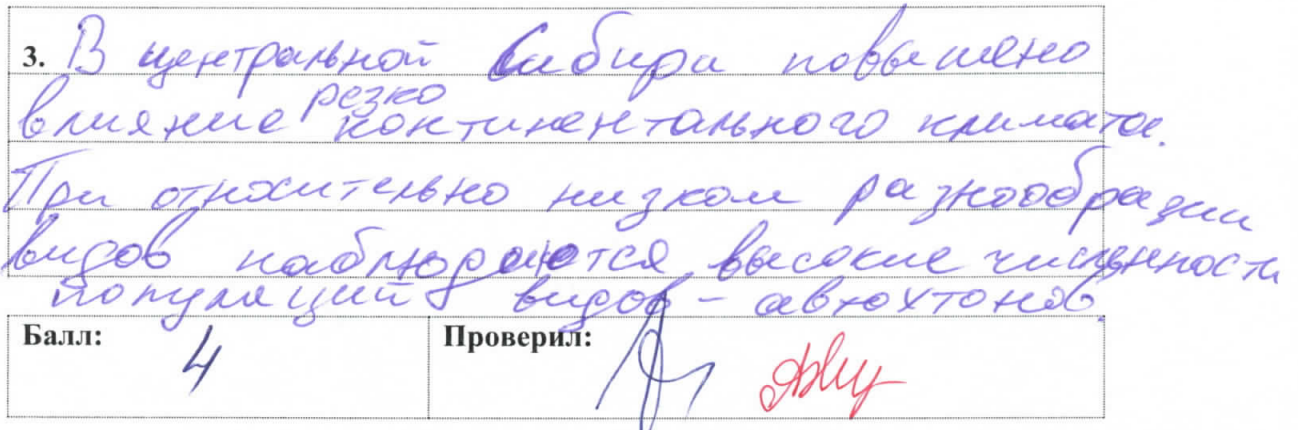 3. В центральной Сибири повышено
влияние резко континентального климата.
При относительно низком разнообразии
видов наблюдаются высокие численности
популяций видов - автохтонов.
Балл: 4 Проверил: